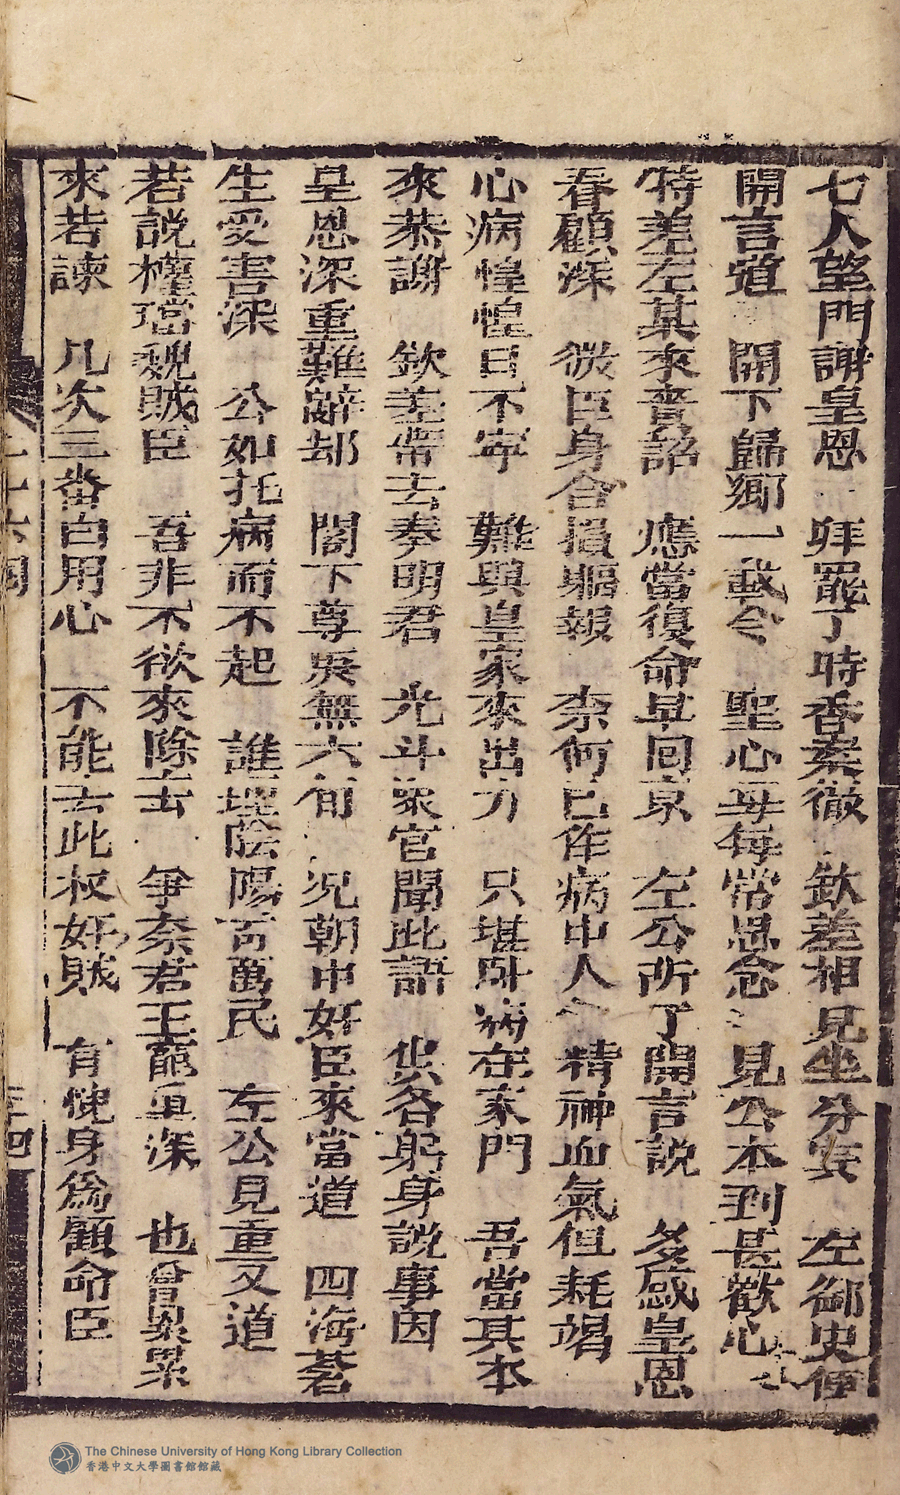 七人望門謝皇恩 拜罷了時香案徹 欽差相見坐分安 左御史便
開言道 開下歸鄉一載令 聖心每每常思念 見公本到甚歡心
特差左某來賫詔 應當復命早回京 左公所了開言說 多感皇恩
春顧深 微臣身合損軀報 奈何已作病中人 精神血氣但耗竭
心病惶惶日不寧 難與皇家來出力 只堪卧病在家門 吾當具本
來恭謝 欽差帶去奉明君 光斗衆官聞此語 俱各躬身說事因
皇恩深重難辭却 閣下尊庚無六旬 况朝中奸臣來當道 四海蒼
生愛害深 公如托病而不起 誰理陰陽百萬民 左公見重又道
若說權璫魏賊臣 吾非不欲來除去 爭奈君王寵重深 也曾累累
來若諫 凡次三番白用心 不能去此权奸賊 有愧身爲顧命臣
The Chinese University of Hong Kong Library Collection
香港中文大學圖書館館藏